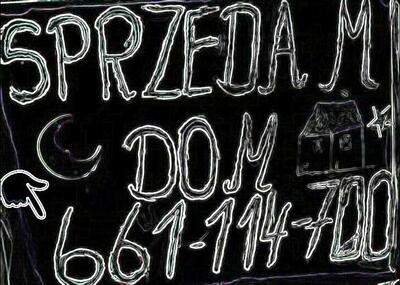 SPRZEDAM
DOM
661-114-700